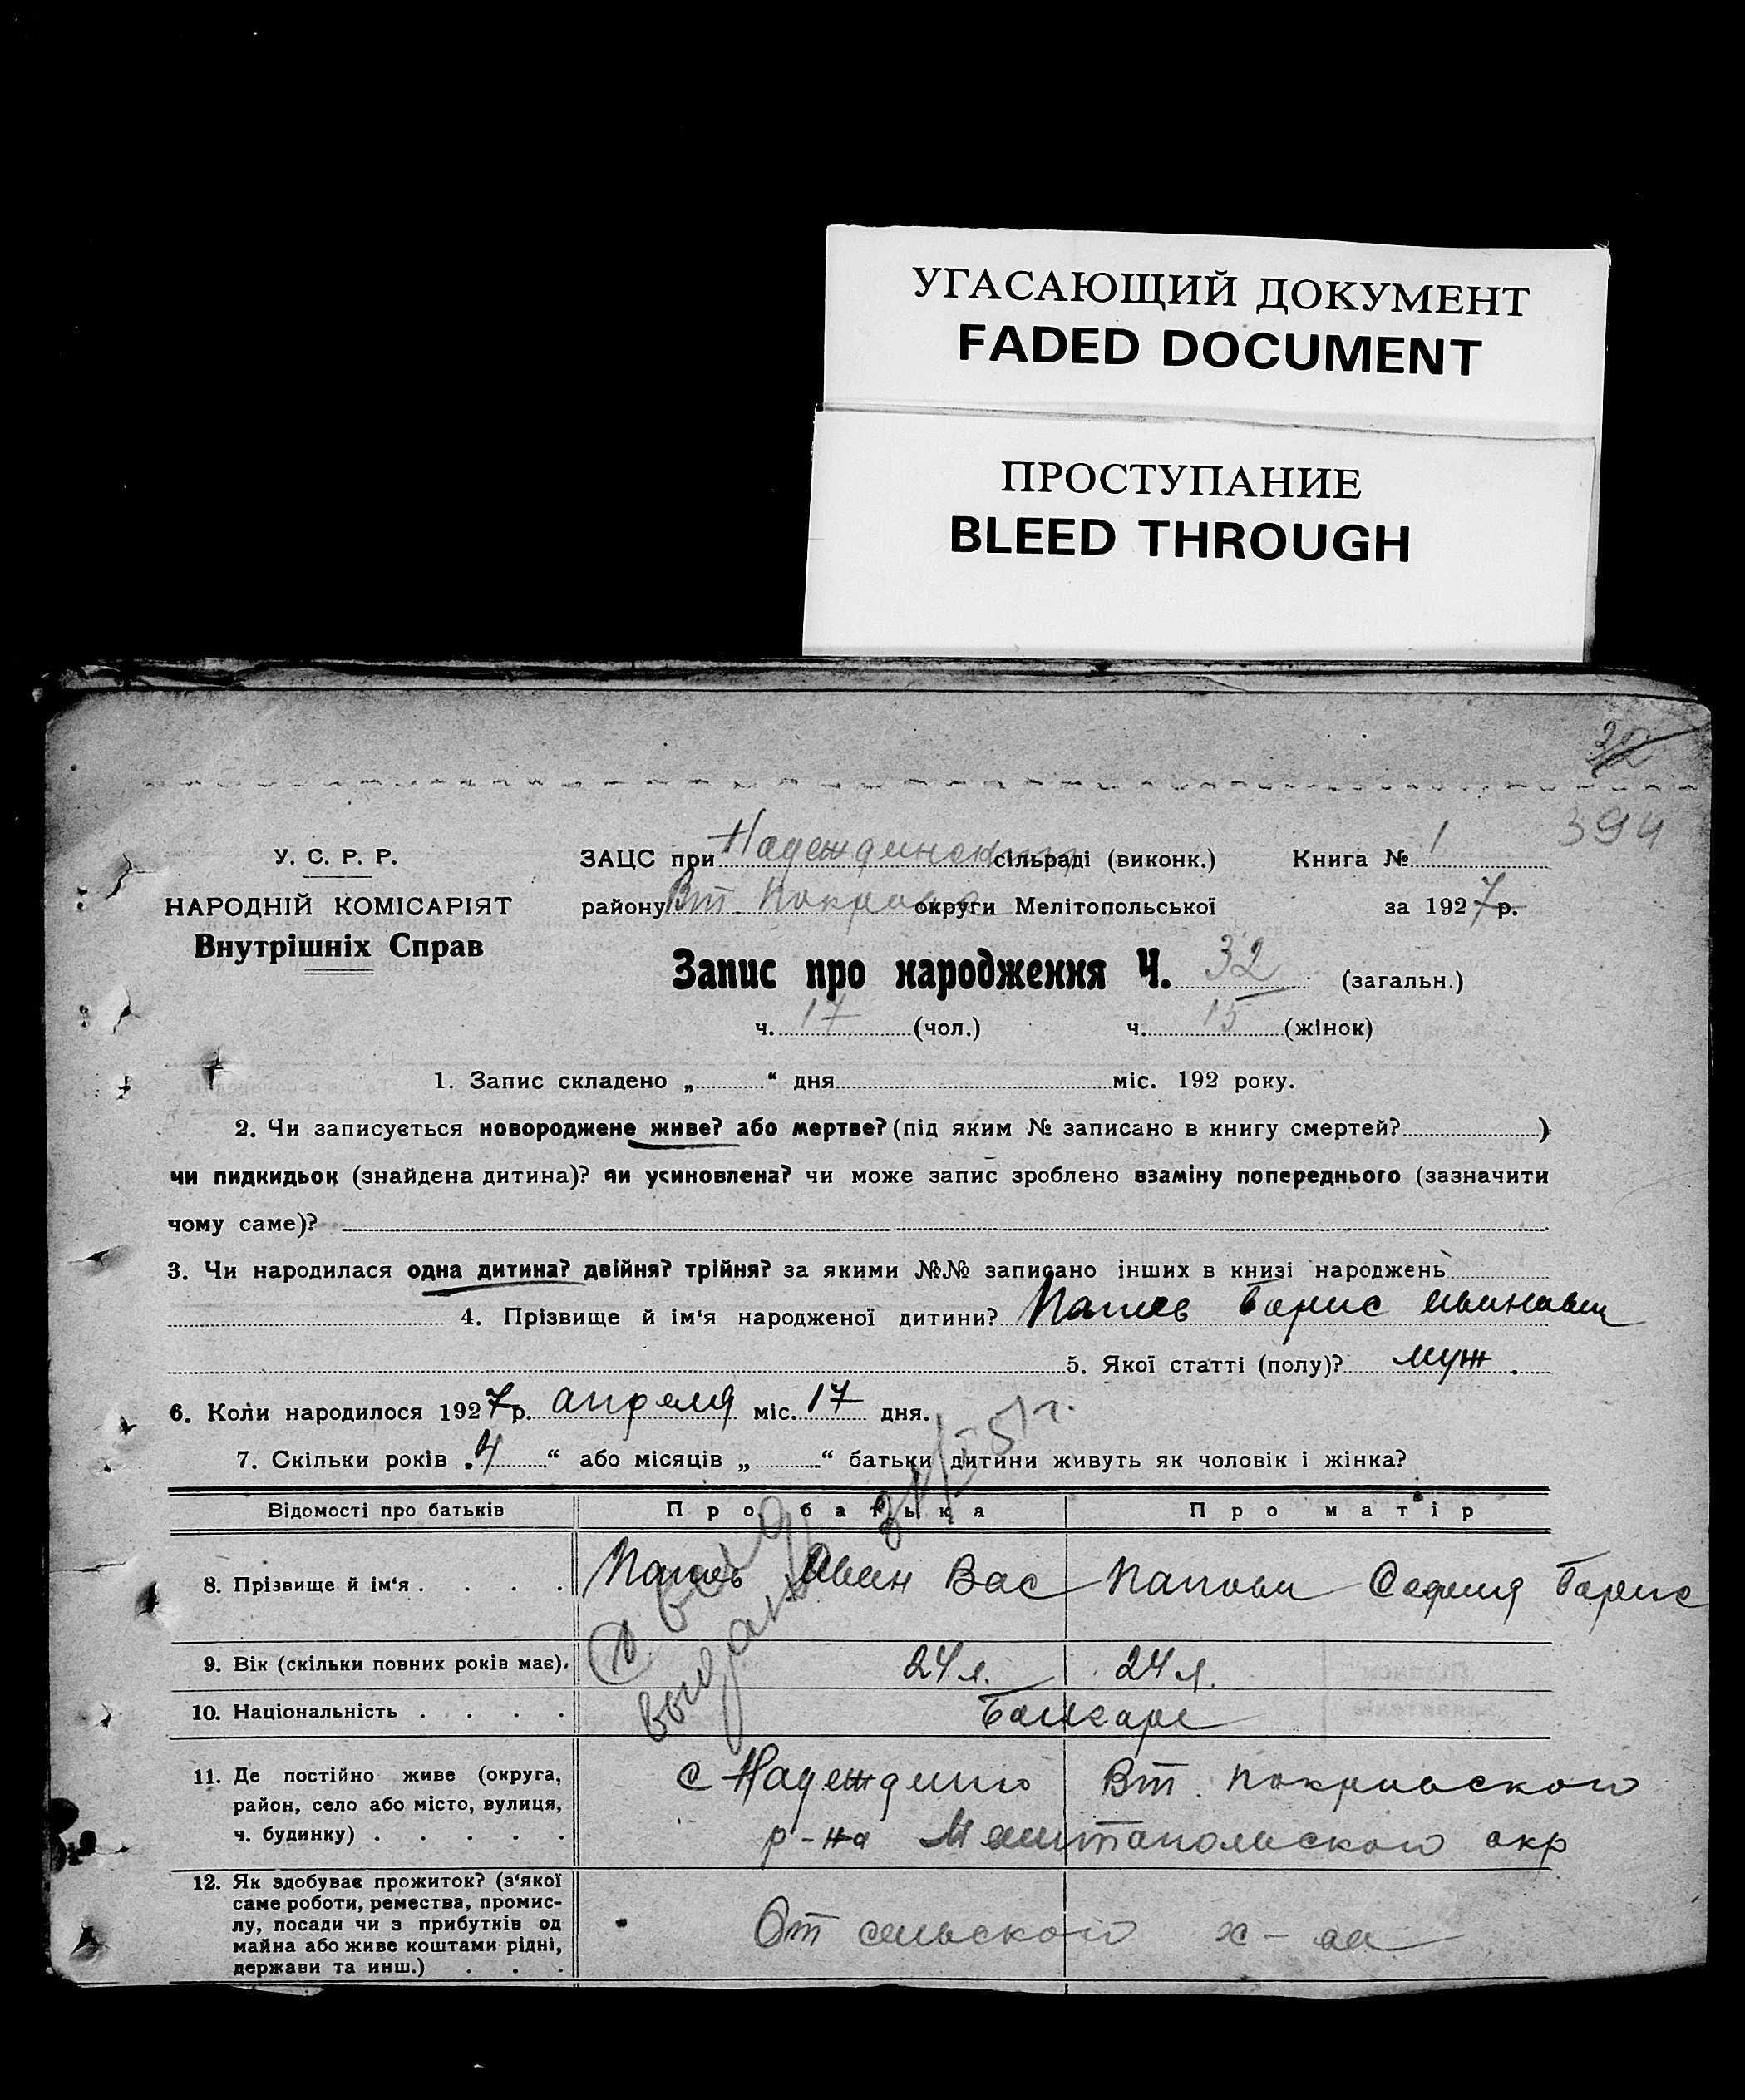 УГАСАЮЩИЙ ДОКУМЕНТ
FADED DOCUMENT
ПРОСТУПАНИЕ
BLEED THROUGH
32
394
У. С. Р. Р.
НАРОДНІЙ КОМІСАРІЯТ
Внутрішніх Справ
ЗАЦС при Надеждинском сільраді (виконк.) Книга № 1
району Вт. Покровск округи Мелітопольської за 1927 р.
Запис про народження Ч. 32 (загальн.)
ч. 17 (чол.) ч. 15 (жінок)
1. Запис складено „ “ дня міс. 192 року.
2. Чи записується новороджене живе? або мертве? (під яким № записано в книгу смертей? )
чи пидкидьок (знайдена дитина)? чи усиновлена? чи може запис зроблено взаміну попереднього (зазначити
чому саме)?
3. Чи народилася одна дитина? двійня? трійня? за якими №№ записано інших в книзі народжень
4. Прізвище й ім‘я народженої дитини? Борис Иванович
5. Якої статті (полу)? муж.
6. Коли народилося 1927 р. апреля міс. 17 дня.
7. Скільки років „ 4 “ або місяців „ “ батьки дитини живуть як чоловік і жінка?
Відомості про батьків Про батька Про матір
8. Прізвище й ім‘я Иван Вас Борис
9. Вік (скільки повних років має). 24 л. 24 л.
10. Національність Болгаре
11. Де постійно живе (округа, район, село або місто, вулиця, ч. будинку)
с Надеждино Вт. Покровского
р-на Мелитопольского окр
12. Як здобуває прожиток? (з‘якої
саме роботи, ремества, промис-
лу, посади чи з прибутків од
майна або живе коштами рідні,
держави та инш.)
От сельского х-ва